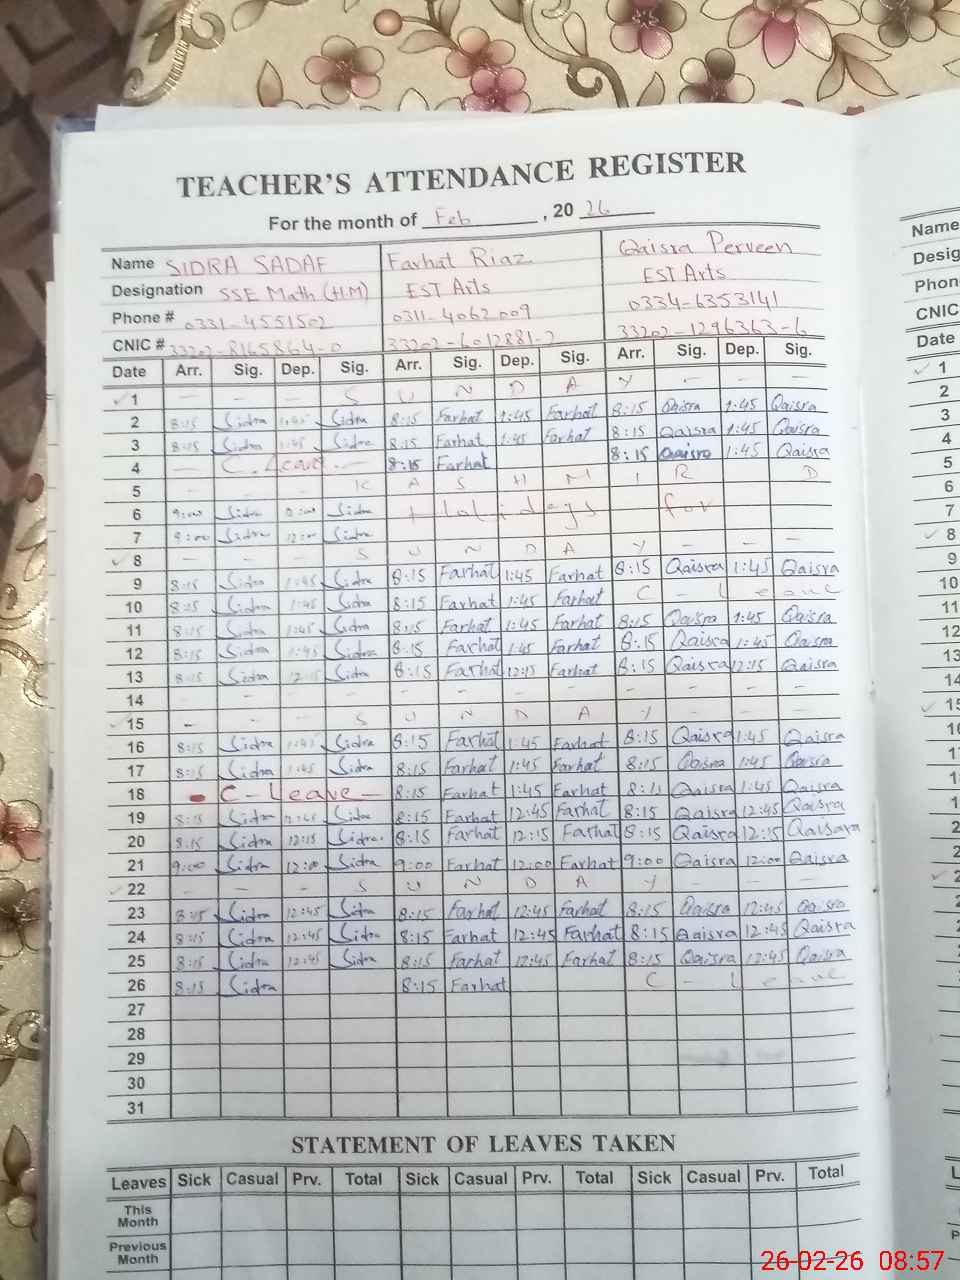 TEACHER'S ATTENDANCE REGISTER
For the month of Feb, 20 26
Name SIDRA SADAF Farhat Riaz Qaisra Perveen Name
Designation SSE Math (H.M) EST Arts EST Arts Desig
Phone # 0331-4551502 0311-4062009 0334-6353141 Phon
CNIC # 33202-8165864-0 33202-6012881-2 33202-1296363-6 CNIC
Date Arr. Sig. Dep. Sig. Arr. Sig. Dep. Sig. Arr. Sig. Dep. Sig. Date
1 - - - S U N D A Y - - - 1
2 8:15 Sidra 1:45 Sidra 8:15 Farhat 1:45 Farhat 8:15 Qaisra 1:45 Qaisra 2
3 8:15 Sidra 1:45 Sidra 8:15 Farhat 1:45 Farhat 8:15 Qaisra 1:45 Qaisra 3
4 - C. Leave - 8:15 Farhat 8:15 Qaisra 1:45 Qaisra 4
5 - - - K A S H M I R D 5
6 9:00 Sidra Sidra Holidays for 6
7 9:00 Sidra 12:00 Sidra 7
8 - - - S U N D A Y - - - 8
9 8:15 Sidra 1:45 Sidra 8:15 Farhat 1:45 Farhat 8:15 Qaisra 1:45 Qaisra 9
10 8:15 Sidra 1:45 Sidra 8:15 Farhat 1:45 Farhat C - Leave 10
11 8:15 Sidra 1:45 Sidra 8:15 Farhat 1:45 Farhat 8:15 Qaisra 1:45 Qaisra 11
12 8:15 Sidra 1:45 Sidra 8:15 Farhat 1:45 Farhat 8:15 Qaisra 1:45 Qaisra 12
13 8:15 Sidra 12:15 Sidra 8:15 Farhat 12:15 Farhat 8:15 Qaisra 12:15 Qaisra 13
14 - - - - - - - - - - - - 14
15 - - - S U N D A Y - - - 15
16 8:15 Sidra 1:45 Sidra 8:15 Farhat 1:45 Farhat 8:15 Qaisra 1:45 Qaisra
17 8:15 Sidra 1:45 Sidra 8:15 Farhat 1:45 Farhat 8:15 Qaisra 1:45 Qaisra
18 C - Leave - 8:15 Farhat 1:45 Farhat Qaisra 1:45 Qaisra
19 8:15 Sidra 12:45 Sidra 8:15 Farhat 12:45 Farhat 8:15 Qaisra 12:45 Qaisra
20 8:15 Sidra 12:15 Sidra 8:15 Farhat 12:15 Farhat 8:15 Qaisra 12:15 Qaisara
21 9:00 Sidra 12:00 Sidra 9:00 Farhat 12:00 Farhat 9:00 Qaisra 12:00 Qaisra
22 - - - S U N D A Y - - -
23 8:15 Sidra 12:45 Sidra 8:15 Farhat 12:45 Farhat 8:15 Qaisra 12:45 Qaisra
24 8:15 Sidra 12:45 Sidra 8:15 Farhat 12:45 Farhat 8:15 Qaisra 12:45 Qaisra
25 8:15 Sidra 12:45 Sidra 8:15 Farhat 12:45 Farhat 8:15 Qaisra 12:45 Qaisra
26 8:15 Sidra 8:15 Farhat C - Leave
27
28
29
30
31
STATEMENT OF LEAVES TAKEN
Leaves Sick Casual Prv. Total Sick Casual Prv. Total Sick Casual Prv. Total
This Month
Previous Month
26-02-26 08:57